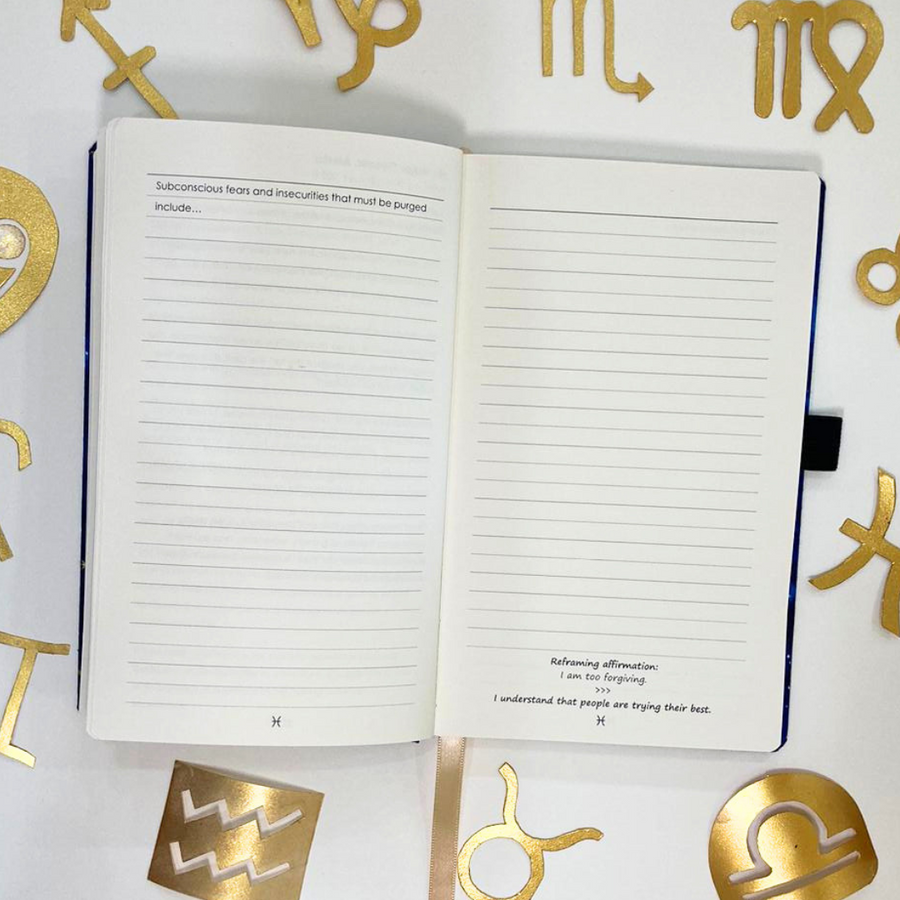 Subconscious fears and insecurities that must be purged
include...
Reframing affirmation:
I am too forgiving.
>>>
I understand that people are trying their best.
♓
♓